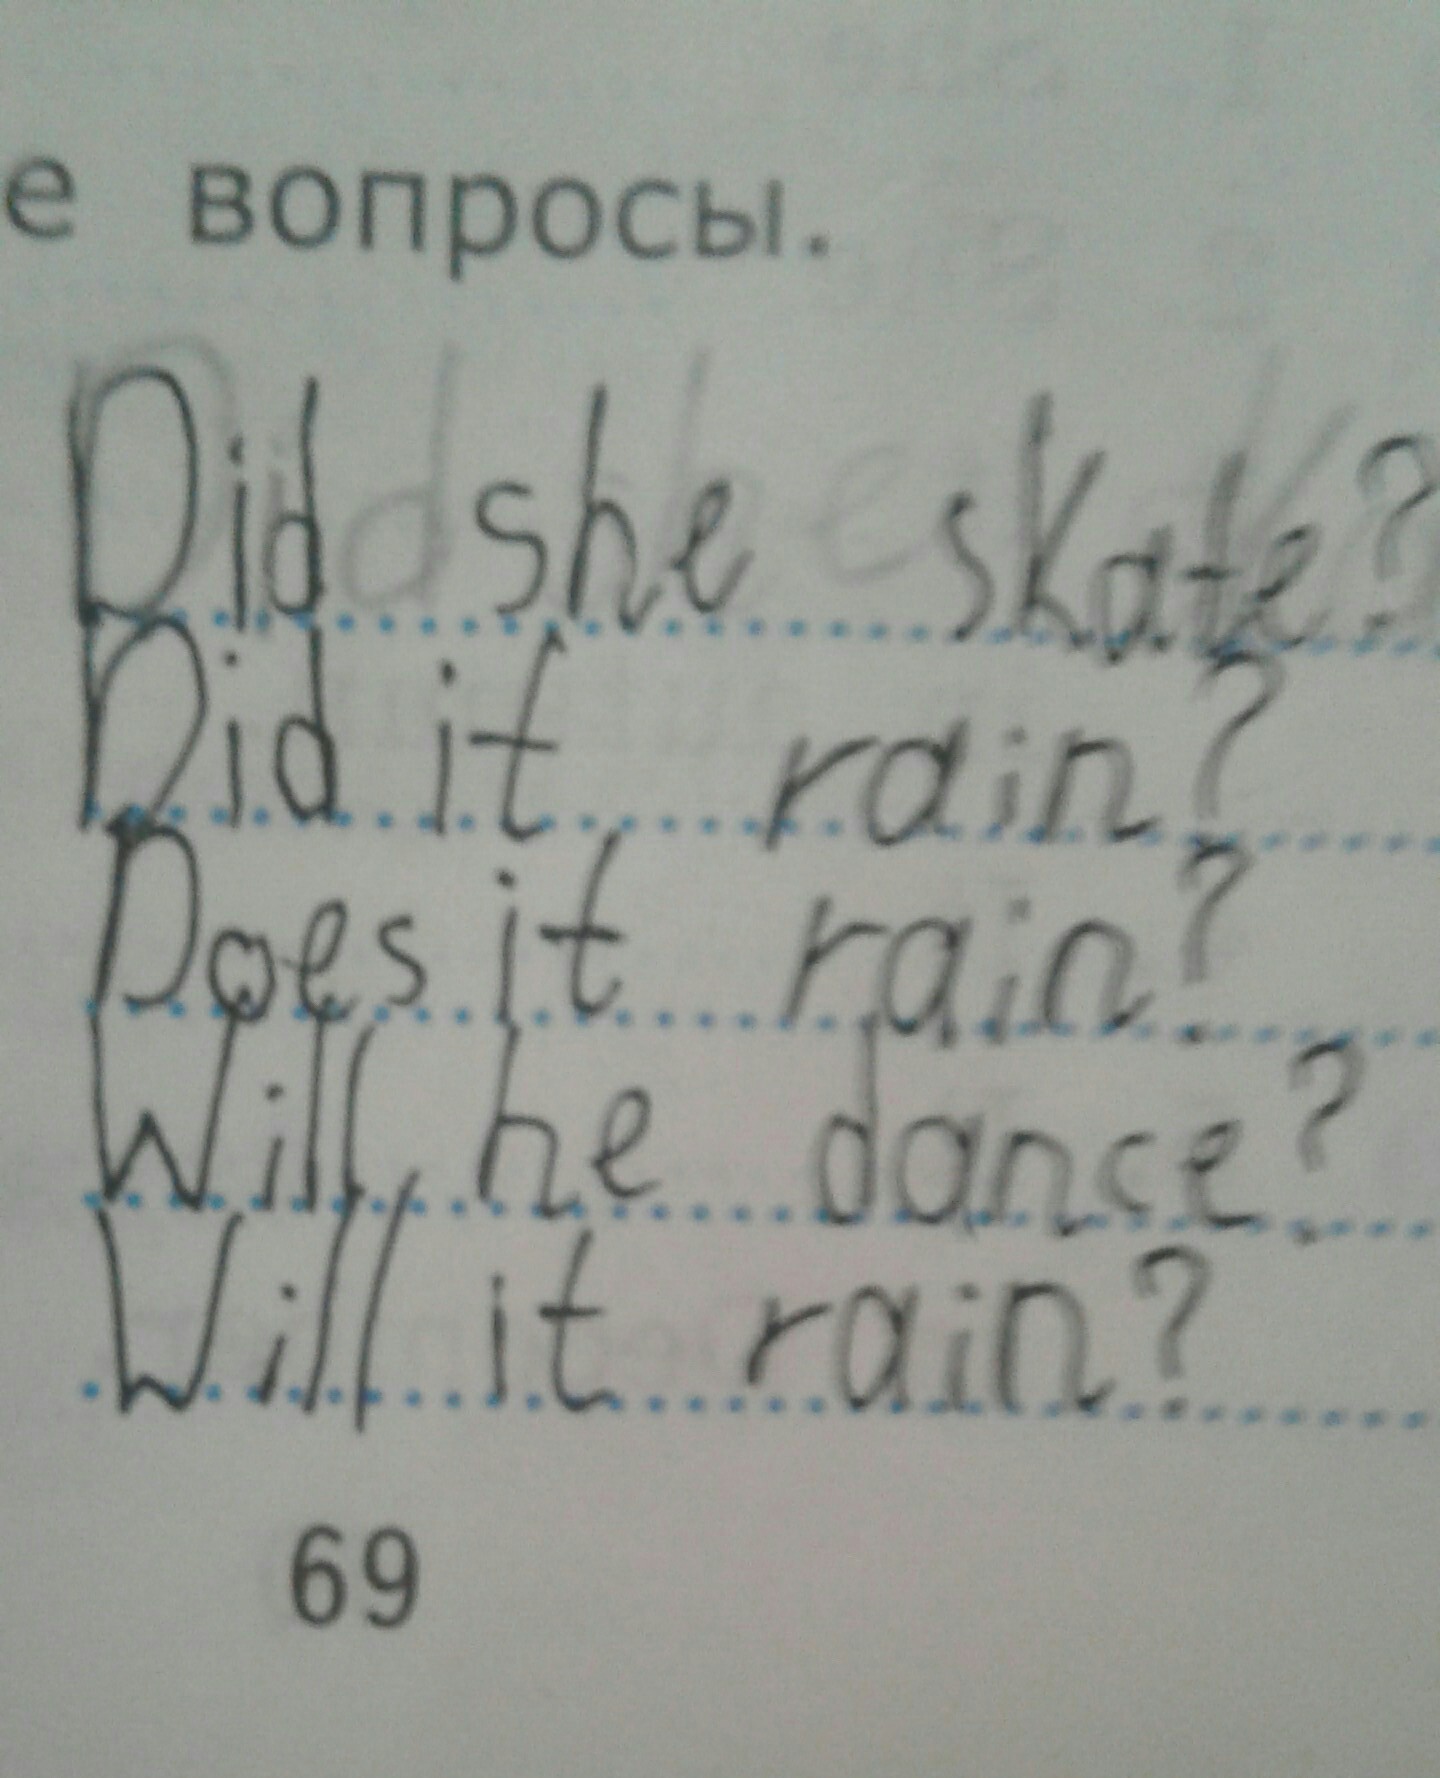 е вопросы.
Did she skate?
Did it rain?
Does it rain?
Will he dance?
Will it rain?
69